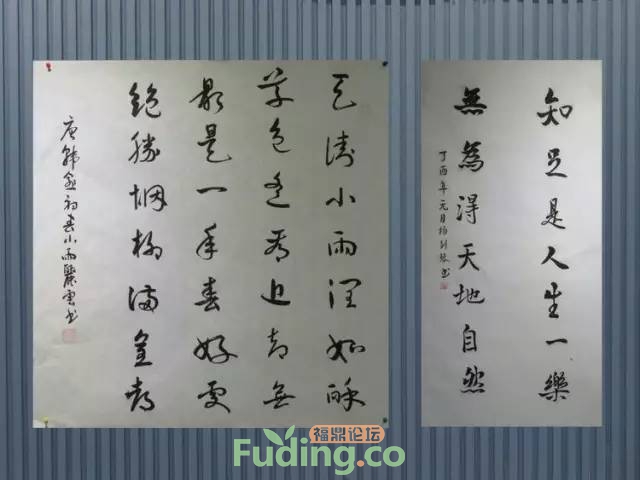 知足是人生一樂
無為得天地自然
丁酉年元月
天街小雨润如酥
草色遥看近却無
最是一年春好處
絕勝烟柳满皇都
唐韓愈初春小雨麗雲书
福鼎论坛
Fuding.co